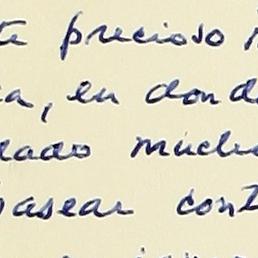 te precioso
a, en dond
lado much
pasear cont